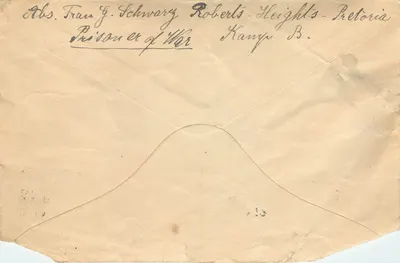 Abs. Frau G. Schwarz Roberts-Heights-Pretoria
Prisoner of War Kamp B.